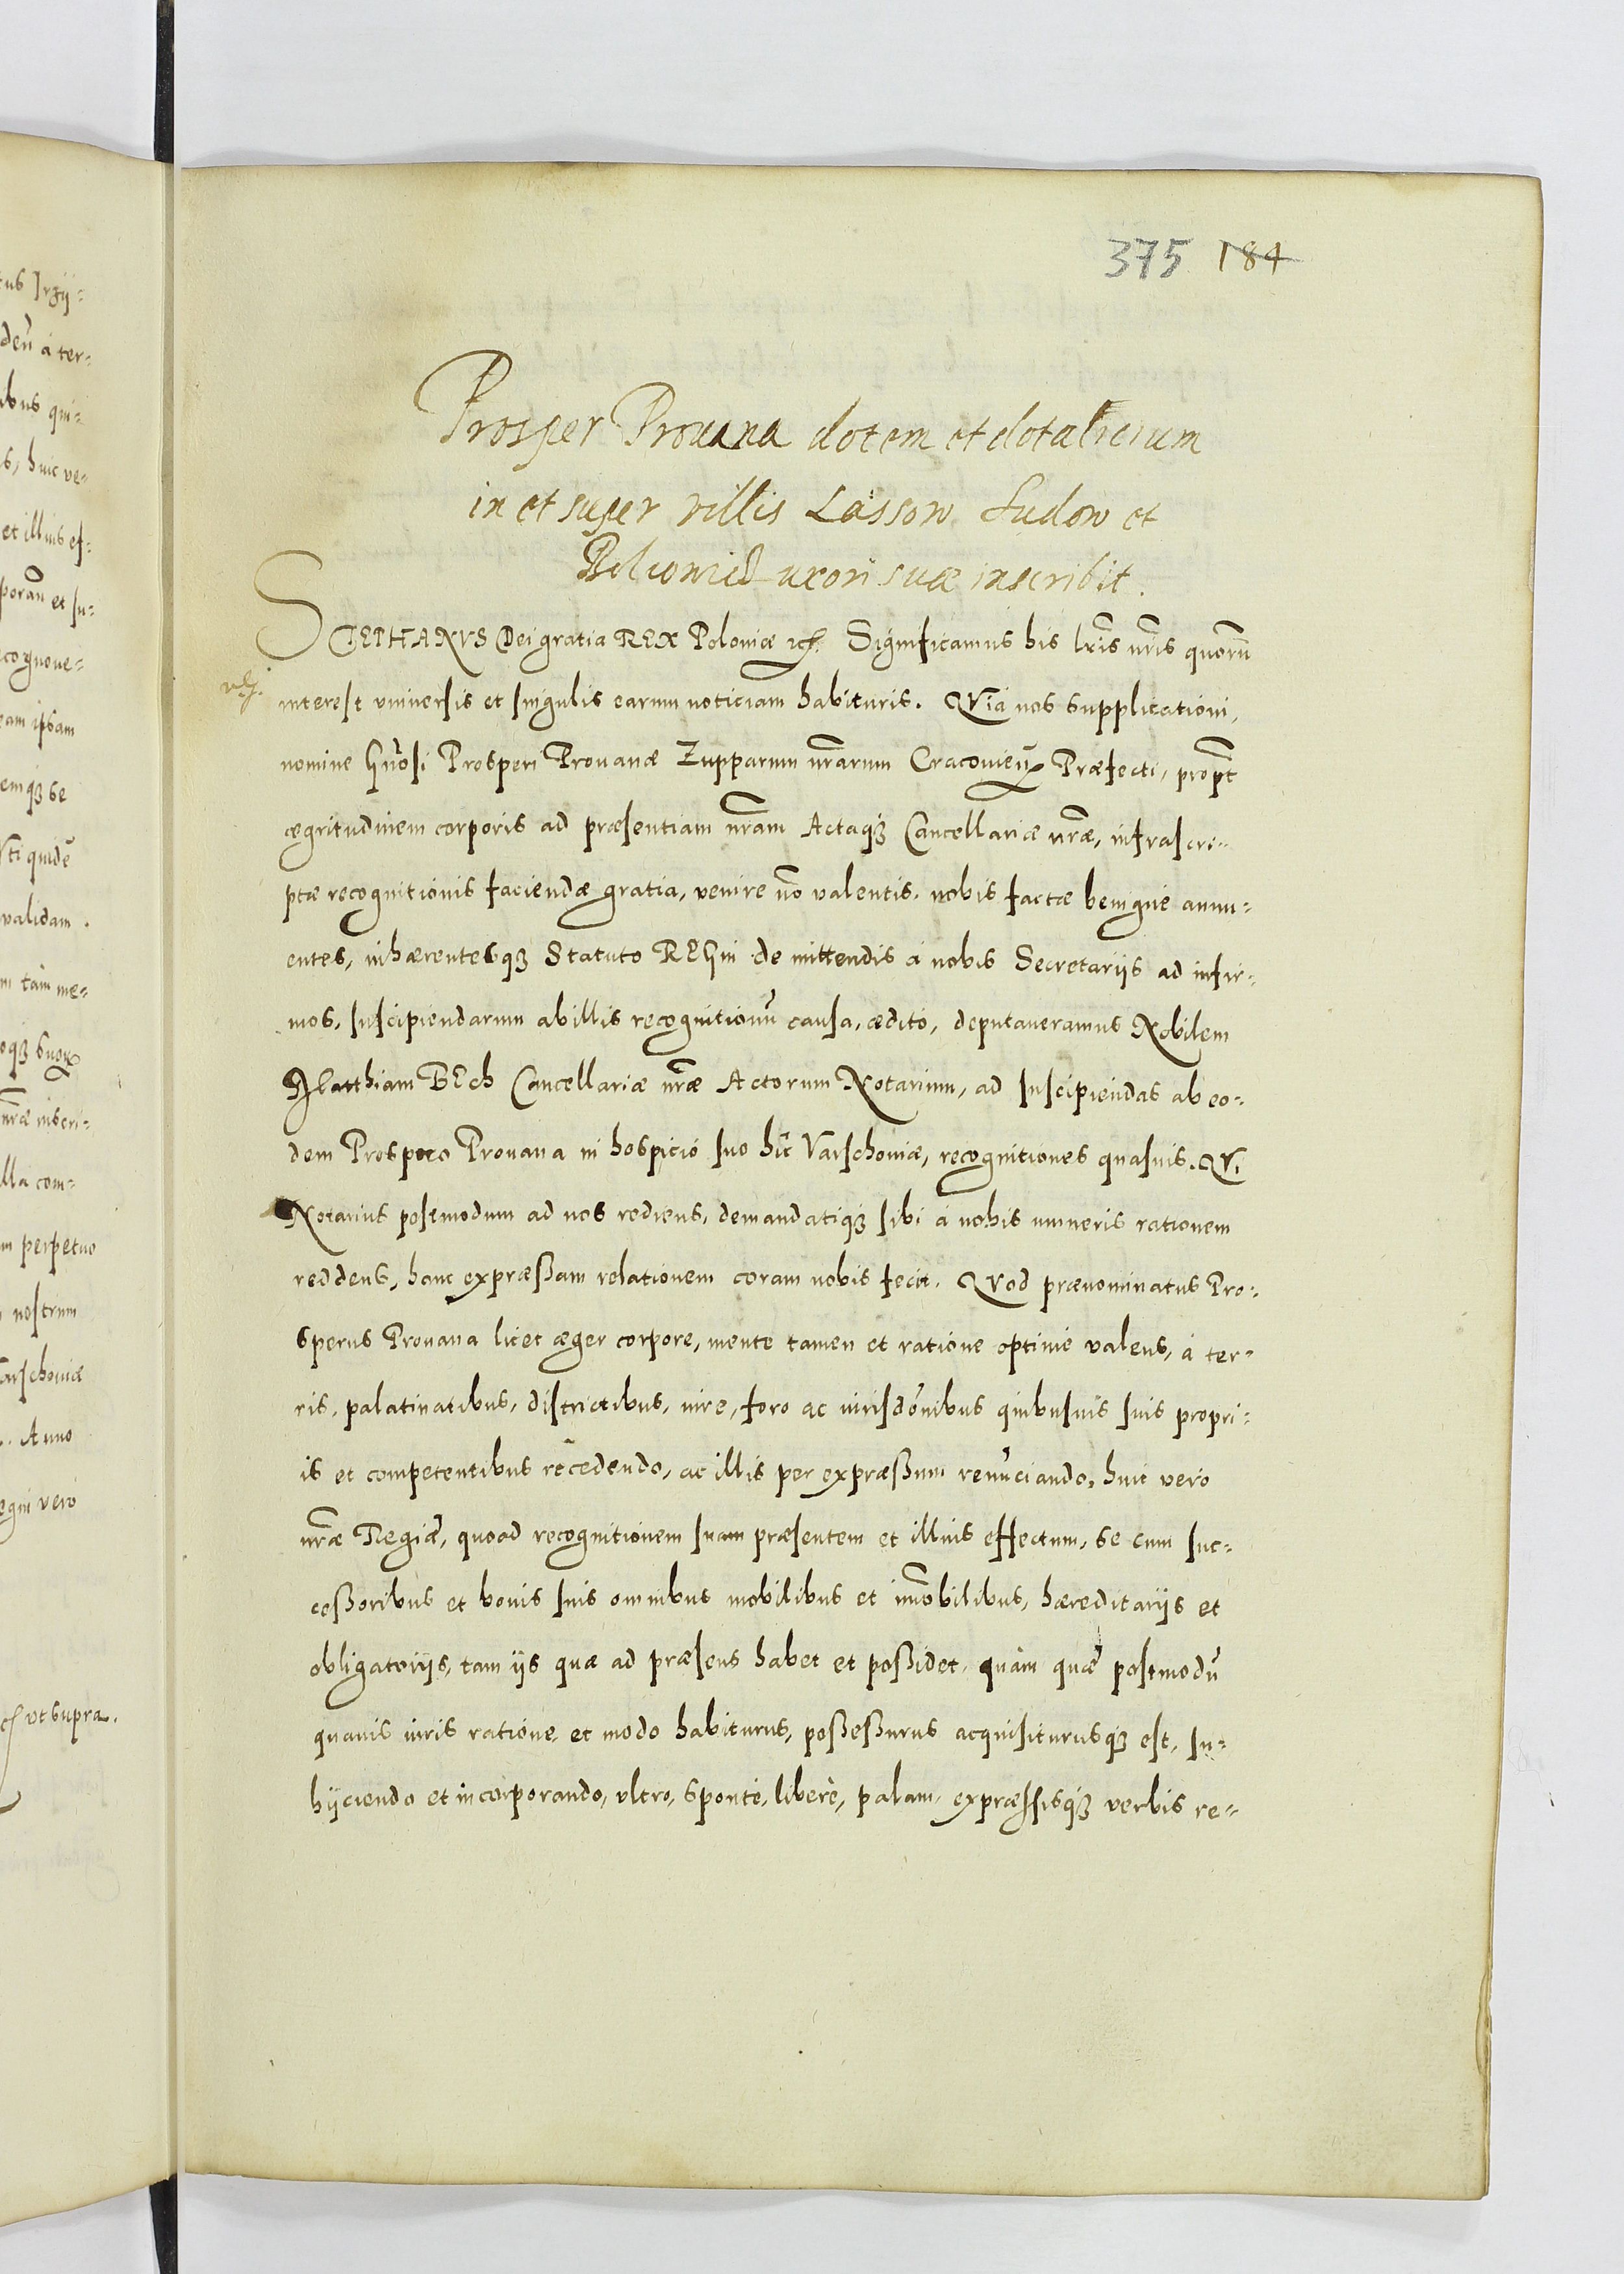 375 184
Prosper Prouana dotem et dotalicium
in et super villis Lassow Sudow et
uxori suæ inscribit.
STEPHANVS Dei gratia REX Poloniæ ꝛcꝭ. Significamus his lr̃is nr̃is quorũ
interest vniuersis et singulis earum noticiam habituris. QVia nos supplicationi,
nomine Gñosi Prosperi Prouanæ Zupparum nr̃arum Cracouieñ Præfecti, propt̃
ægritudinem corporis ad præsentiam nr̃am Actaqꝫ Cancellariæ nr̃æ, infrascri-
ptæ recognitionis faciendæ gratia, venire nõ valentis. nobis factæ benignè annu-
entes, inhærentesqꝫ Statuto REGni de mittendis à nobis Secretariis ad infir-
mos, suscipiendarum ab illis recognitionũ causa, ædito, deputaueramus Nobilem
Matthiam BEch Cancellariæ nr̃æ Actorum Notarium, ad suscipiendas ab eo-
dem Prospero Prouana in hospicio suo hîc Varschouiæ, recognitiones quasuis. QVi
Notarius postmodum ad nos rediens, demandatiqꝫ sibi à nobis muneris rationem
reddens, hanc expræßam relationem coram nobis fecit. QVod prænominatus Pro-
sperus Prouana licet æger corpore, mente tamen et ratione optimè valens, à ter-
ris, palatinatibus, districtibus, iure, foro ac iurisdõnibus quibusuis suis propri-
is et competentibus recedendo, ac illis per expræßum renũciando, huic vero
nr̃æ Regiæ, quoad recognitionem suam præsentem et illius effectum, se cum suc-
ceßoribus et bonis suis omnibus mobilibus et im̃obilibus, hæreditariis et
obligatoriis, tam iis quæ ad præsens habet et poßidet, quàm quæ postmodũ
quauis iuris ratione et modo habiturus, poßeßurus acquisiturusqꝫ est, su-
biiciendo et incorporando, vltro, spontè, liberè, palam, expræssisqꝫ verbis re-